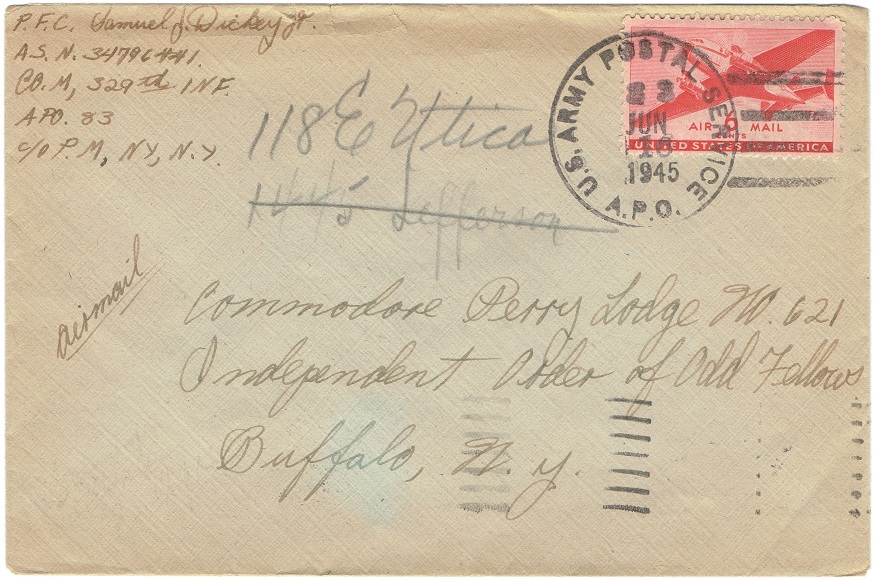 P.F.C. Samuel J. Dickey Jr.
A.S.N. 34796441.
CO. M, 329th INF.
APO. 83
c/o P.M, NY, N.Y.
118 E Utica
1445 Jefferson
airmail
Commodore Perry Lodge No. 621
Independent Order of Odd Fellows
Buffalo, N.Y.
U.S. ARMY POSTAL SERVICE
JUN
16
1945
A.P.O.
6
CENTS
AIR MAIL
UNITED STATES OF AMERICA